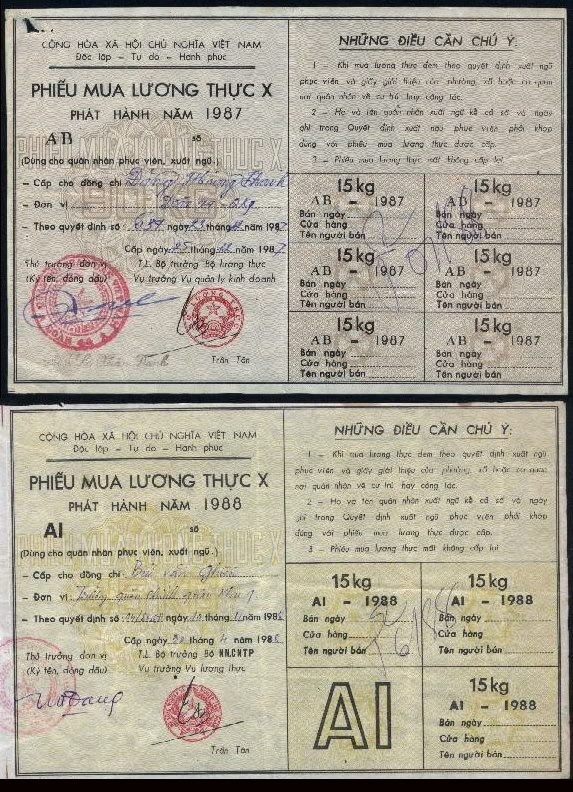 CỘNG HÒA XÃ HỘI CHỦ NGHĨA VIỆT NAM
Độc lập - Tự do - Hạnh phúc
PHIẾU MUA LƯƠNG THỰC X
PHÁT HÀNH NĂM 1987
AB số
(Dùng cho quân nhân phục viên, xuất ngũ)
- Cấp cho đồng chí
- Đơn vị
- Theo quyết định số ngày 23 tháng năm 1987
Cấp ngày tháng 1987
Thủ trưởng đơn vị T.L. Bộ trưởng Bộ lương thực
(Ký tên, đóng dấu) Vụ trưởng Vụ quản lý kinh doanh
Trần Tôn
NHỮNG ĐIỀU CẦN CHÚ Ý:
1 - Khi mua lương thực đem theo quyết định xuất ngũ
phục viên và giấy giới thiệu của phường, xã hoặc cơ quan
nơi quân nhân về cư trú hay công tác.
2 - Họ và tên quân nhân xuất ngũ kể cả số và ngày
ghi trong Quyết định xuất ngũ phục viên phải khớp
đúng với phiếu mua lương thực được cấp.
3 - Phiếu mua lương thực mất không cấp lại
15kg 15kg
AB - 1987 AB - 1987
Bán ngày Bán ngày
Cửa hàng Cửa hàng
Tên người bán Tên người bán
15kg 15kg
AB - 1987 AB - 1987
Bán ngày Bán ngày
Cửa hàng Cửa hàng
Tên người bán Tên người bán
15kg 15kg
AB - 1987 AB - 1987
Bán ngày Bán ngày
Cửa hàng Cửa hàng
Tên người bán Tên người bán
CỘNG HÒA XÃ HỘI CHỦ NGHĨA VIỆT NAM
Độc lập - Tự do - Hạnh phúc
PHIẾU MUA LƯƠNG THỰC X
PHÁT HÀNH NĂM 1988
AI số
(Dùng cho quân nhân phục viên, xuất ngũ)
- Cấp cho đồng chí Bùi văn
- Đơn vị Trường quân chính quân khu 1
- Theo quyết định số ngày tháng năm 198
Cấp ngày tháng năm 198
Thủ trưởng đơn vị T.L. Bộ trưởng Bộ NN.CNTP
(Ký tên, đóng dấu) Vụ trưởng Vụ lương thực
Trần Tôn
NHỮNG ĐIỀU CẦN CHÚ Ý:
1 - Khi mua lương thực đem theo quyết định xuất ngũ
phục viên và giấy giới thiệu của phường, xã hoặc cơ quan
nơi quân nhân về cư trú hay công tác.
2 - Họ và tên quân nhân xuất ngũ kể cả số và ngày
ghi trong Quyết định xuất ngũ phục viên phải khớp
đúng với phiếu mua lương thực được cấp.
3 - Phiếu mua lương thực mất không cấp lại
15kg 15kg
AI - 1988 AI - 1988
Bán ngày Bán ngày
Cửa hàng Cửa hàng
Tên người bán Tên người bán
AI
15kg
AI - 1988
Bán ngày
Cửa hàng
Tên người bán